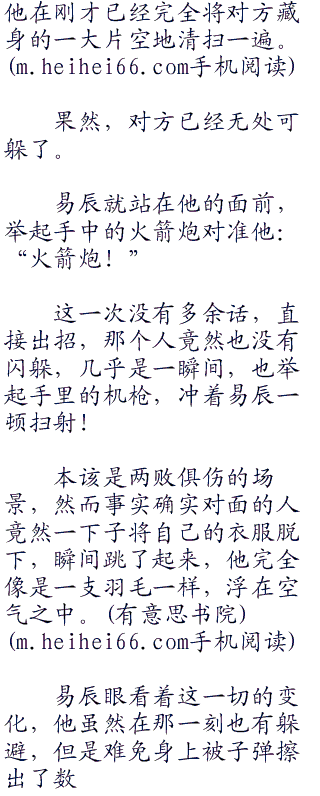 他在刚才已经完全将对方藏
身的一大片空地清扫一遍。
(m.heihei66.com手机阅读)
果然，对方已经无处可
躲了。
易辰就站在他的面前，
举起手中的火箭炮对准他：
“火箭炮！”
这一次没有多余话，直
接出招，那个人竟然也没有
闪躲，几乎是一瞬间，也举
起手里的机枪，冲着易辰一
顿扫射！
本该是两败俱伤的场
景，然而事实确实对面的人
竟然一下子将自己的衣服脱
下，瞬间跳了起来，他完全
像是一支羽毛一样，浮在空
气之中。(有意思书院)
(m.heihei66.com手机阅读)
易辰眼看着这一切的变
化，他虽然在那一刻也有躲
避，但是难免身上被子弹擦
出了数